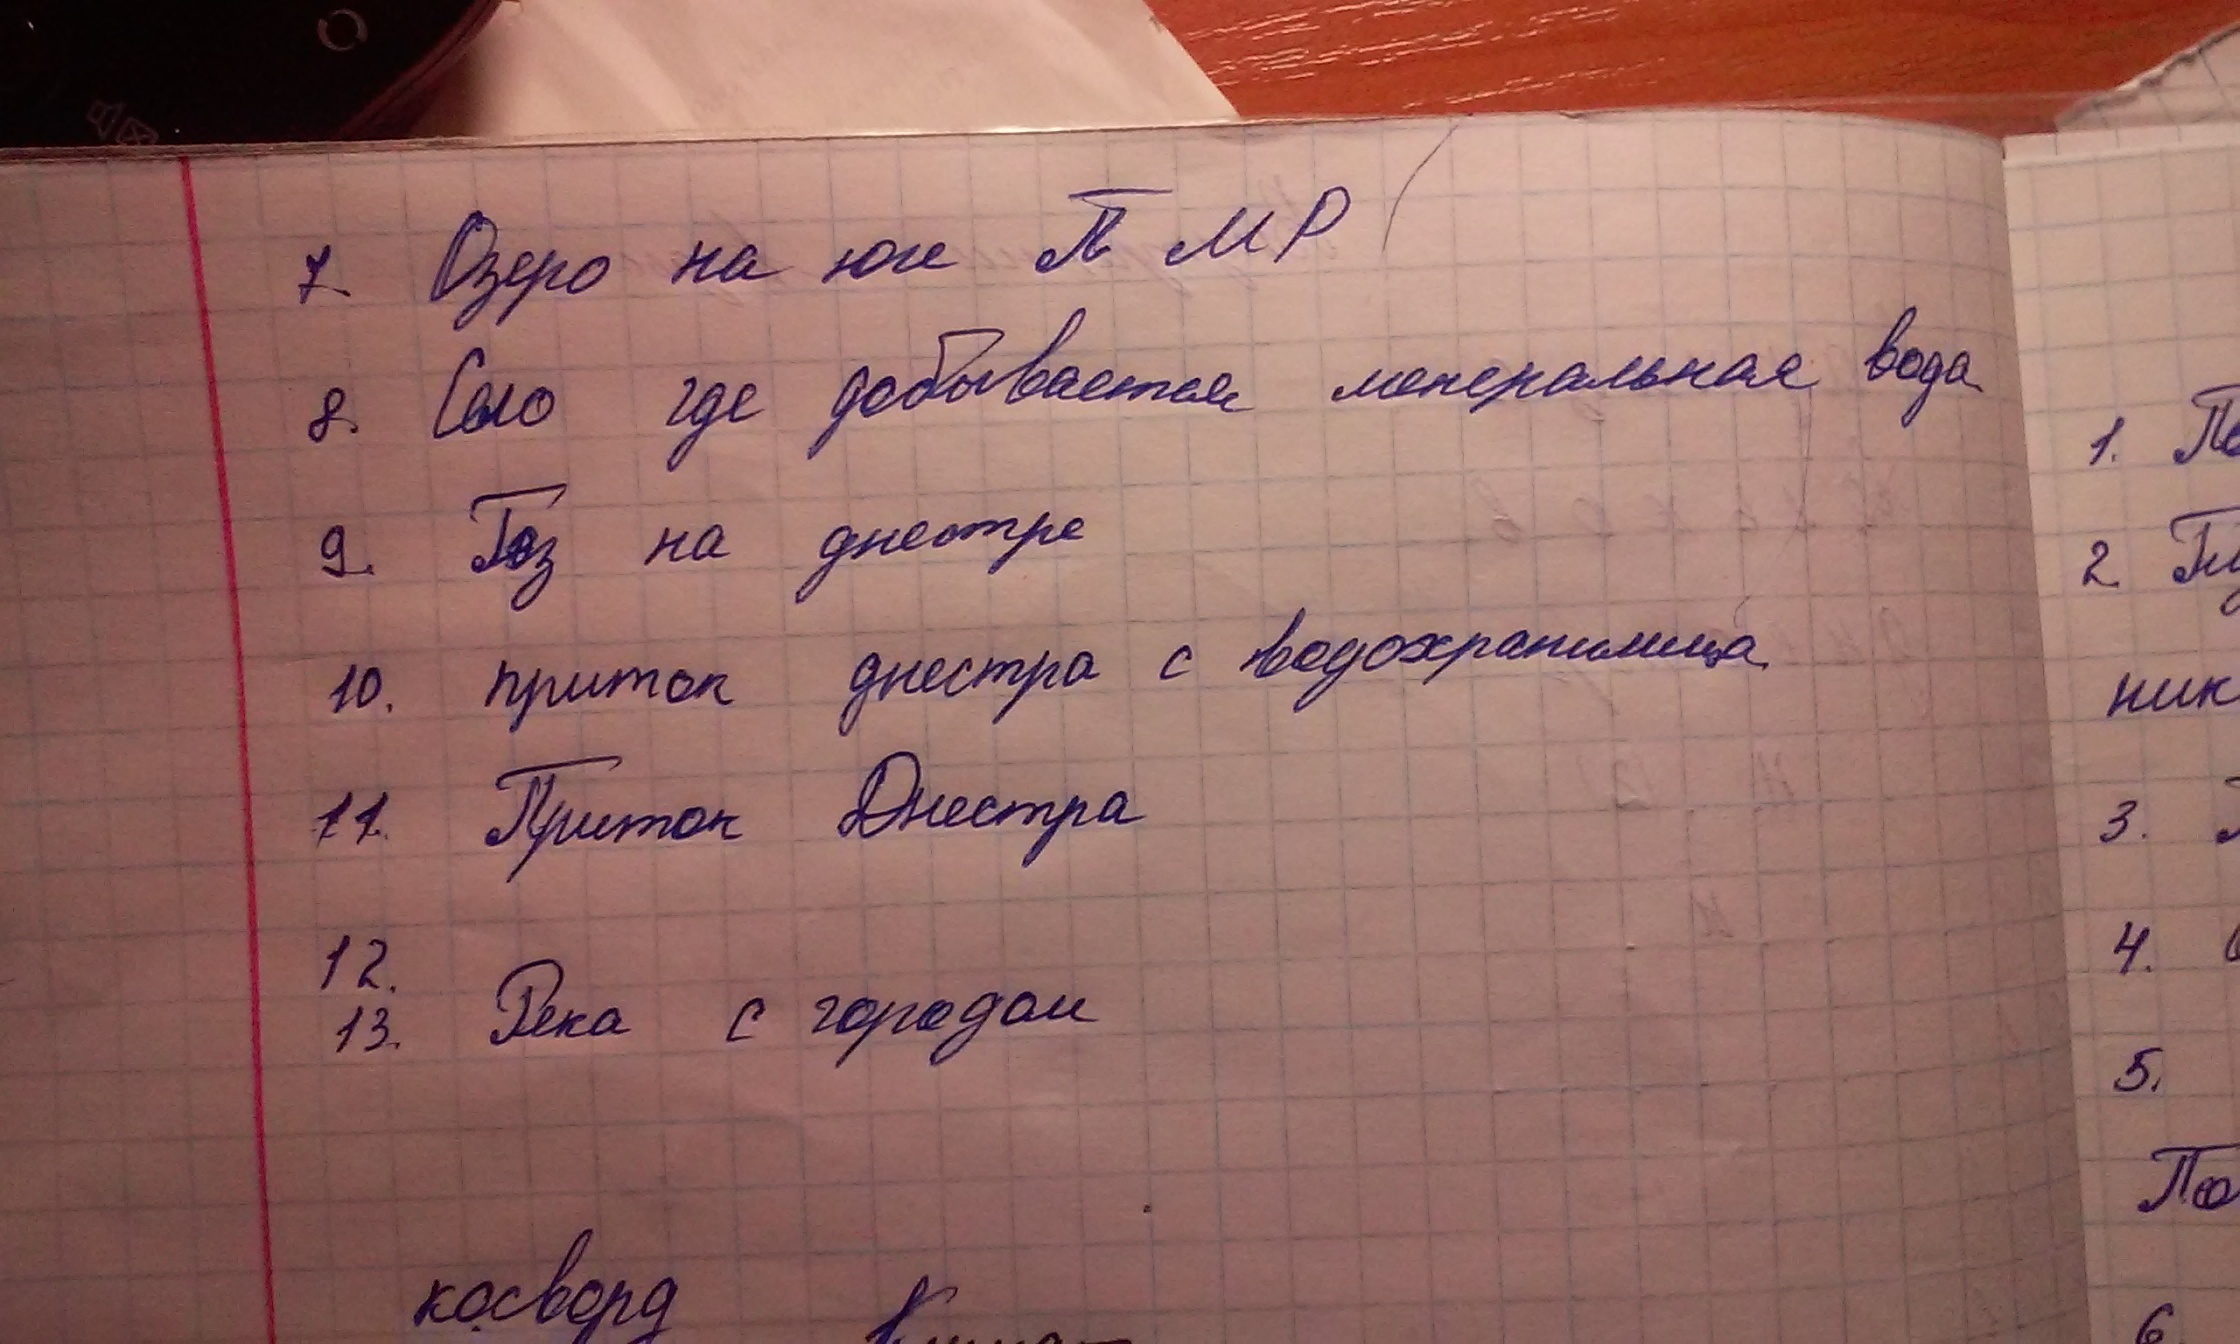 7. Озеро на юге ПМР
8. Село где добывается менеральная вода
9. Гэз на днестре
10. приток днестра с водохранилища
11. Приток Днестра
12.
13. Река с городом
косворд
1. По
2. Пл
ник
3.
4.
5.
По
6